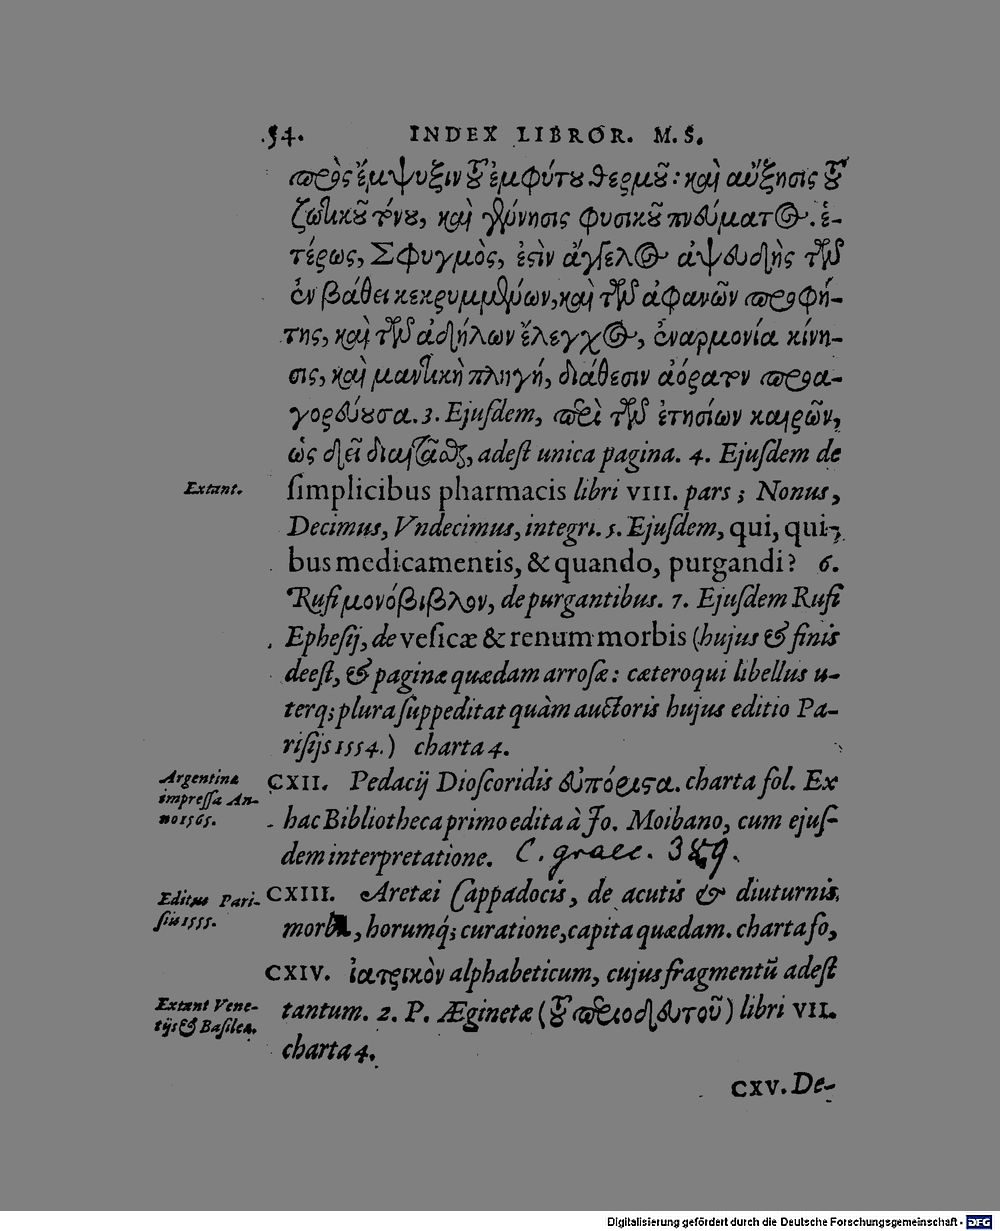 54. INDEX LIBROR. M.S.
πρὸς ἔμψυξιν τοῦ ἐμφύτου θερμοῦ: καὶ αὔξησις τοῦ
ζωτικοῦ τόνου, καὶ γέννησις φυσικοῦ πνεύματος. ἑ-
τέρως, Σφυγμὸς, ἐστὶν ἄγγελος ἀψευδὴς τῶν
ἐν βάθει κεκρυμμένων, καὶ τῶν ἀφανῶν προφή-
της, καὶ τῶν ἀδήλων ἔλεγχος, ἐναρμονία κίνη-
σις, καὶ μαντικὴ πληγή, διάθεσιν ἀόρατον προα-
γορεύουσα. 3. Ejuſdem, περὶ τῶν ἐτησίων καιρῶν,
ὡς δεῖ διαιτᾶσθαι, adeſt unica pagina. 4. Ejuſdem de
Extant.
ſimplicibus pharmacis libri VIII. pars; Nonus,
Decimus, Vndecimus, integri. 5. Ejuſdem, qui, qui-
bus medicamentis, & quando, purgandi? 6.
Rufi μονόβιβλον, de purgantibus. 7. Ejuſdem Rufi
Epheſij, de veſicæ & renum morbis (hujus & finis
deeſt, & paginæ quædam arroſæ: cæteroqui libellus u-
terq; plura ſuppeditat quàm auctoris hujus editio Pa-
riſijs 1554.) charta 4.
Argentinæ
impreſſa An-
no 1565.
CXII. Pedacij Dioſcoridis εὐπόριστα. charta fol. Ex
hac Bibliotheca primo edita à Jo. Moibano, cum ejuſ-
dem interpretatione. C. graec. 389.
Editus Pari-
ſiis 1555.
CXIII. Aretæi Cappadocis, de acutis & diuturnis
morbis, horumq́; curatione, capita quædam. charta fo,
CXIV. ἰατρικὸν alphabeticum, cujus fragmentũ adeſt
Extant Vene-
tijs & Baſileæ.
tantum. 2. P. Æginetæ (τοῦ περιοδευτοῦ) libri VII.
charta 4.
CXV. De-
Digitalisierung gefördert durch die Deutsche Forschungsgemeinschaft - DFG